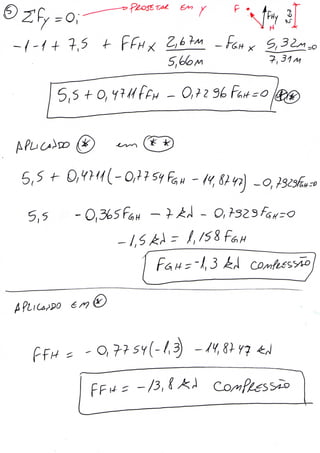 ⑤ ΣFy = 0; → PROJETAR EM Y F FHy 2,67
-1-1 + 7,5 + FFH x 2,67m/5,66m - FGH x 5,32m/7,31m =0
5,5 + 0,4711 FFH - 0,7296 FGH = 0 (**)
APLICANDO (*) em (**)
5,5 + 0,4711 (-0,7754 FGH - 14,8747) - 0,7929 FGH = 0
5,5 - 0,365 FGH - 7 kN - 0,7929 FGH = 0
-1,5 kN = 1,158 FGH
FGH = -1,3 kN COMPRESSÃO
APLICANDO EM (*)
FFH = -0,7754 (-1,3) - 14,8747 kN
FFH = -13,8 kN COMPRESSÃO